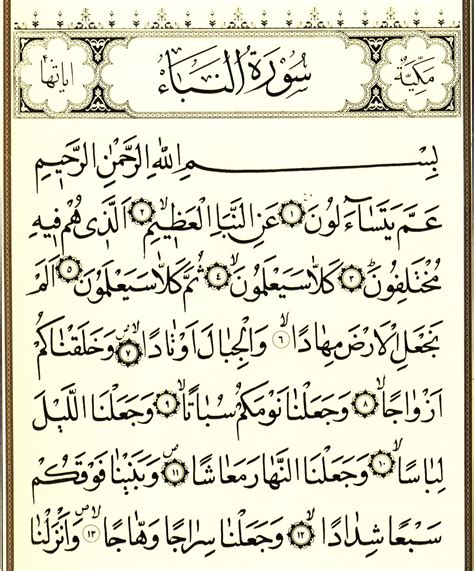 مكية سورة النباء اياتها
بسم الله الرحمن الرحيم
عم يتساءلون ١ عن النبا العظيم ٢ الذى هم فيه
مختلفون ٣ كلا سيعلمون ٤ ثم كلا سيعلمون ٥ الم
نجعل الارض مهادا ٦ والجبال اوتادا ٧ وخلقناكم
ازواجا ٨ وجعلنا نومكم سباتا ٩ وجعلنا الليل
لباسا ١٠ وجعلنا النهار معاشا ١١ وبنينا فوقكم
سبعا شدادا ١٢ وجعلنا سراجا وهاجا ١٣ وانزلنا